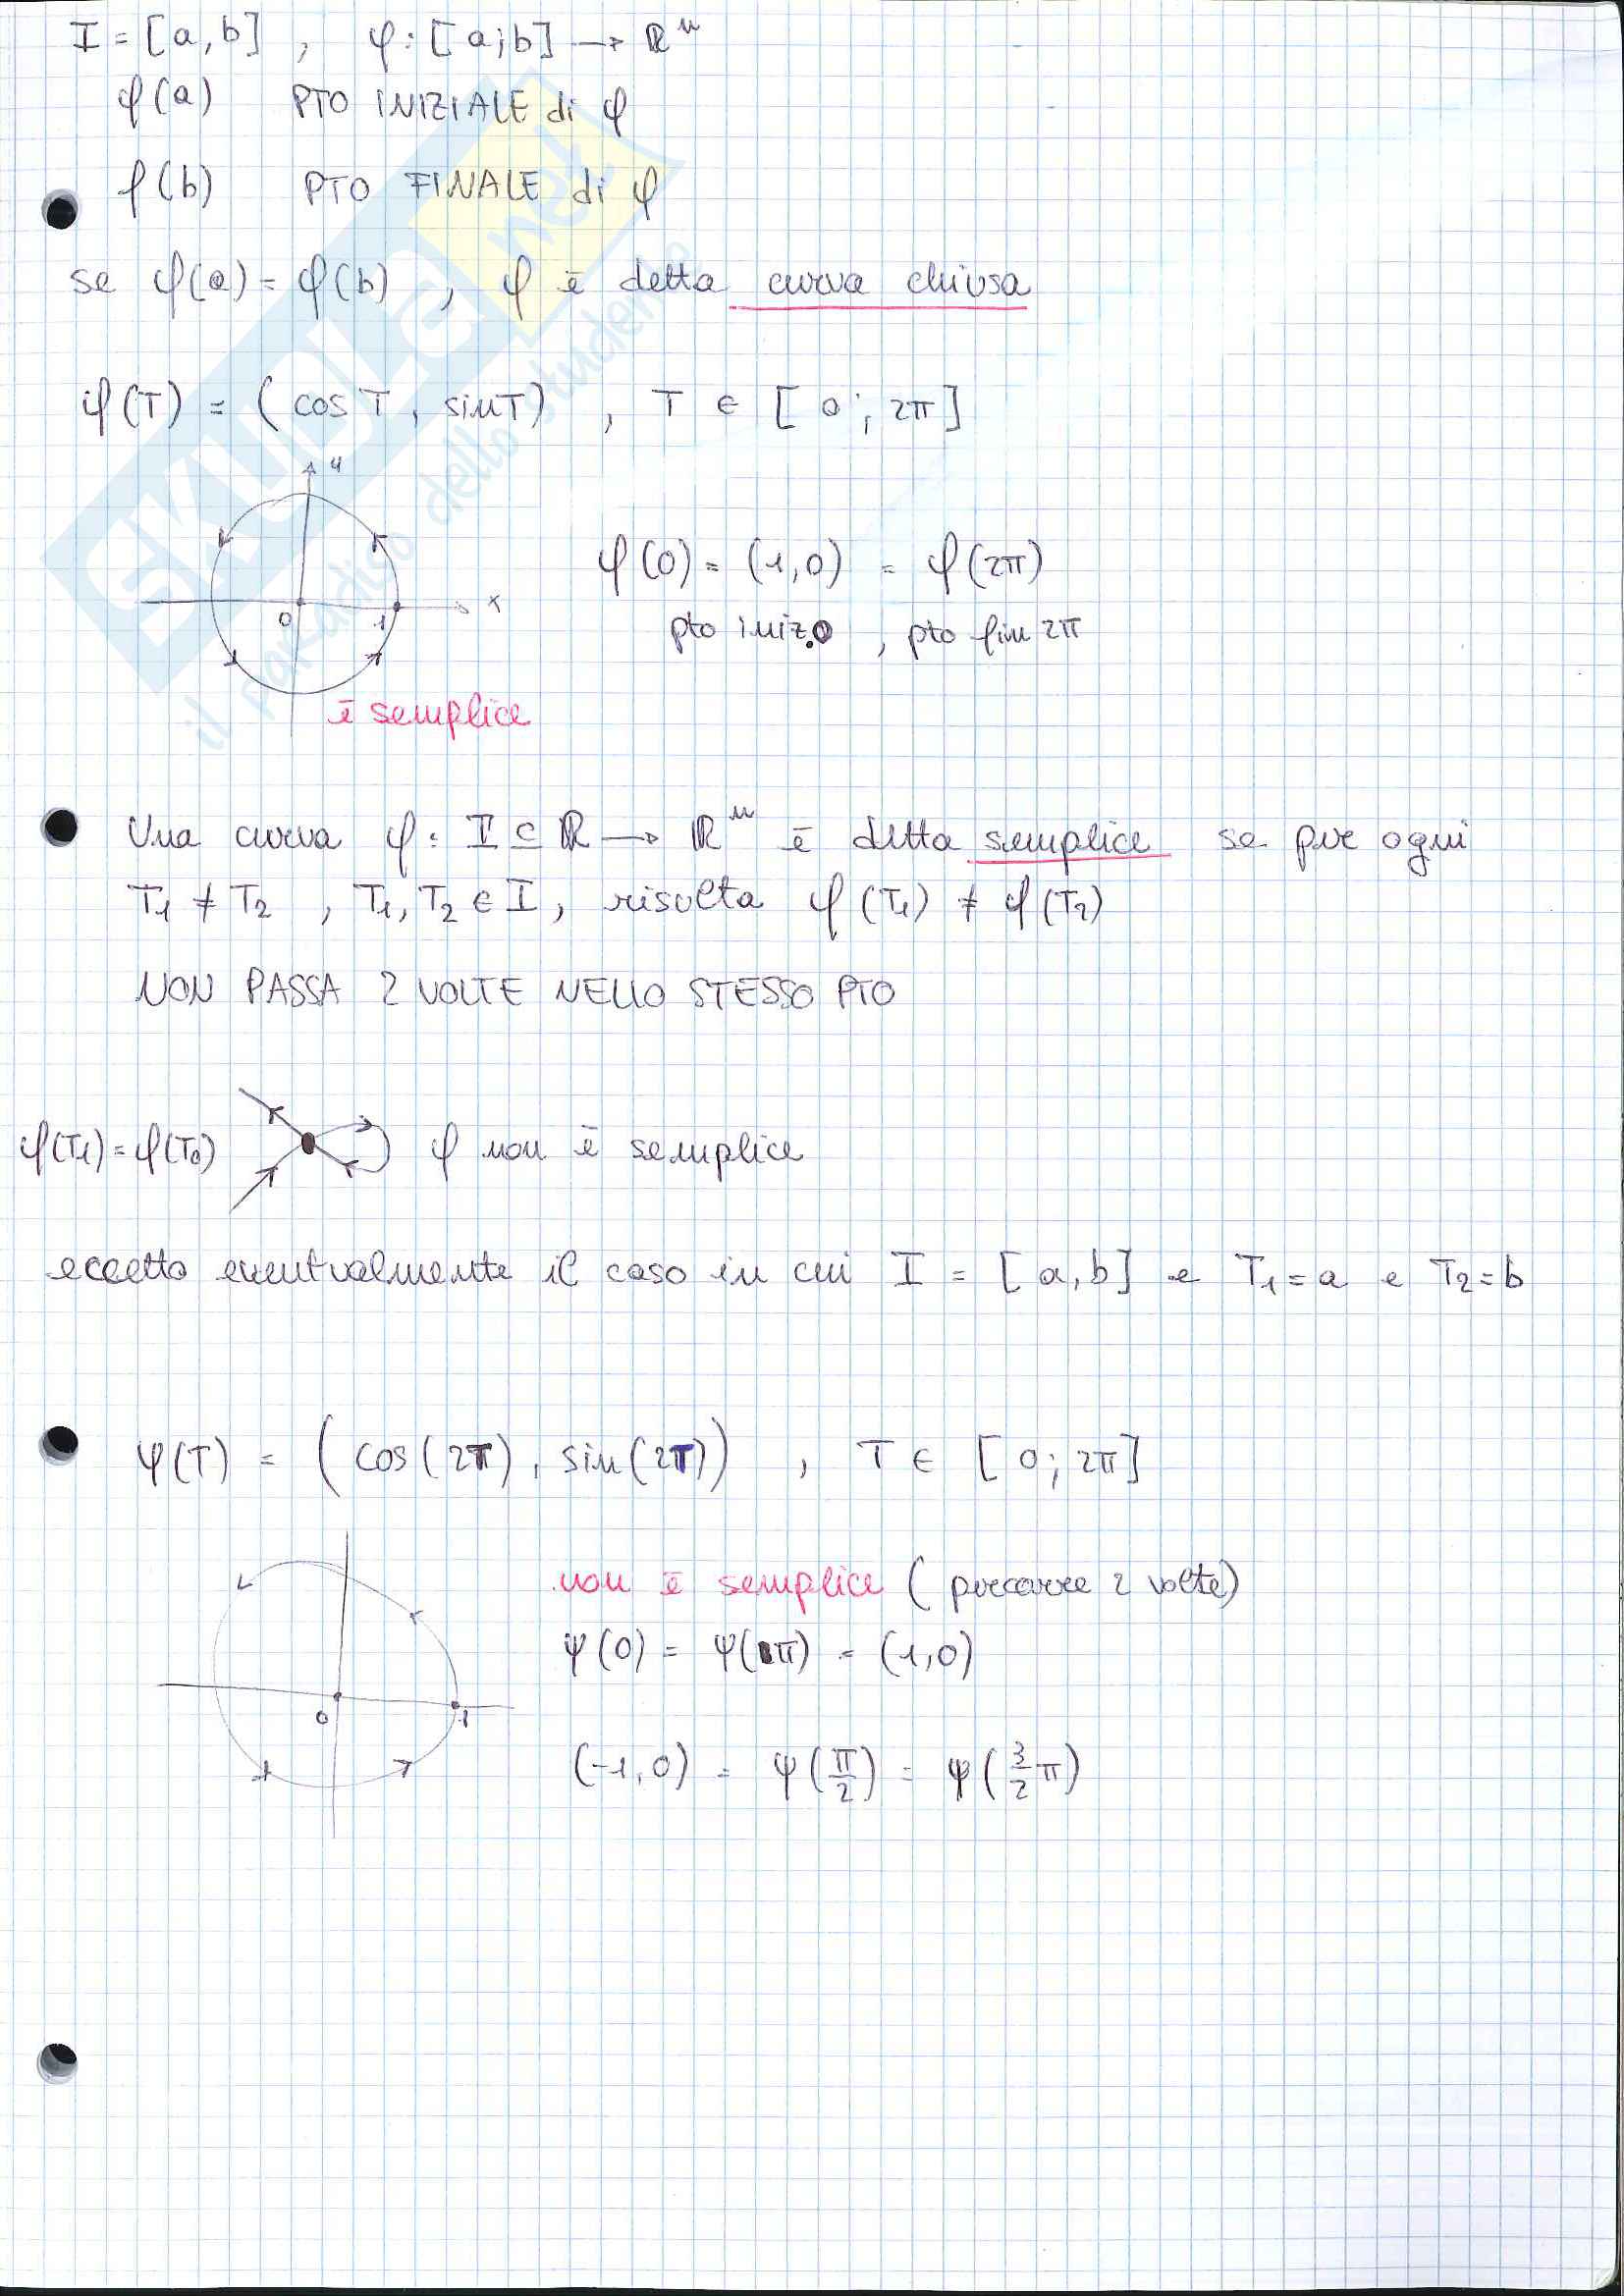 I = [a, b] , φ: [a; b] → ℝⁿ
φ(a) PTO INIZIALE di φ
φ(b) PTO FINALE di φ
se φ(a) = φ(b) , φ è detta curva chiusa
φ(T) = (cos T, sin T) , T ∈ [0; 2π]
y
φ(0) = (1,0) = φ(2π)
0 1 x
pto iniz. 0 , pto fin 2π
è semplice
Una curva φ: I ⊆ ℝ → ℝⁿ è detta semplice se per ogni
T₁ ≠ T₂ , T₁, T₂ ∈ I, risulta φ(T₁) ≠ φ(T₂)
NON PASSA 2 VOLTE NELLO STESSO PTO
φ(T₁) = φ(T₀) φ non è semplice
eccetto eventualmente il caso in cui I = [a, b] e T₁ = a e T₂ = b
ψ(T) = (cos(2T), sin(2T)) , T ∈ [0; 2π]
non è semplice (percorre 2 volte)
ψ(0) = ψ(π) = (1,0)
0 1
(-1,0) = ψ(π/2) = ψ(3/2 π)
SKUOLA.net
il paradiso dello studente